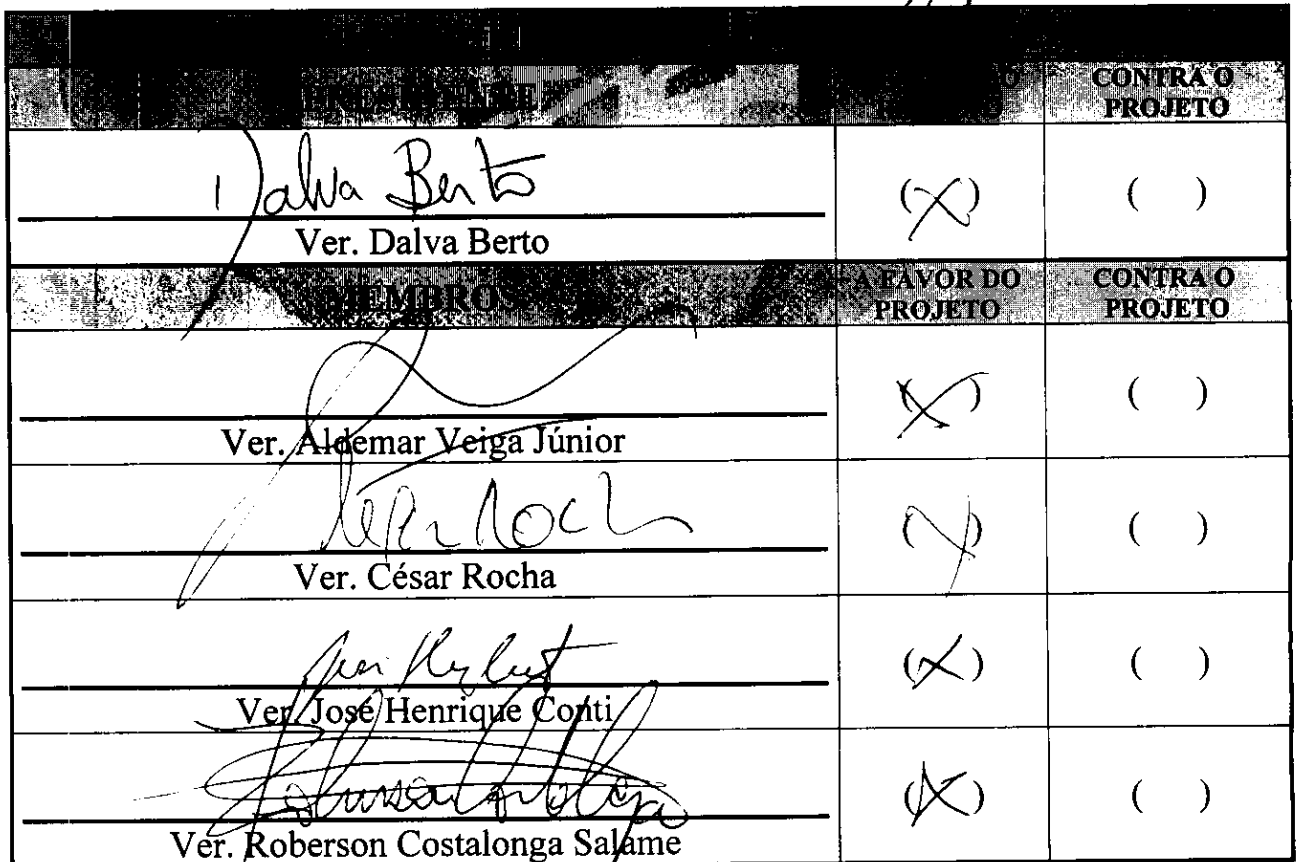 PRESIDENTE CONTRA O
PROJETO
Dalva Berto (X) ( )
Ver. Dalva Berto
MEMBROS A FAVOR DO CONTRA O
PROJETO PROJETO
(X) ( )
Ver. Aldemar Veiga Júnior
César Rocha (X) ( )
Ver. César Rocha
(X) ( )
Ver. José Henrique Conti
(X) ( )
Ver. Roberson Costalonga Salame